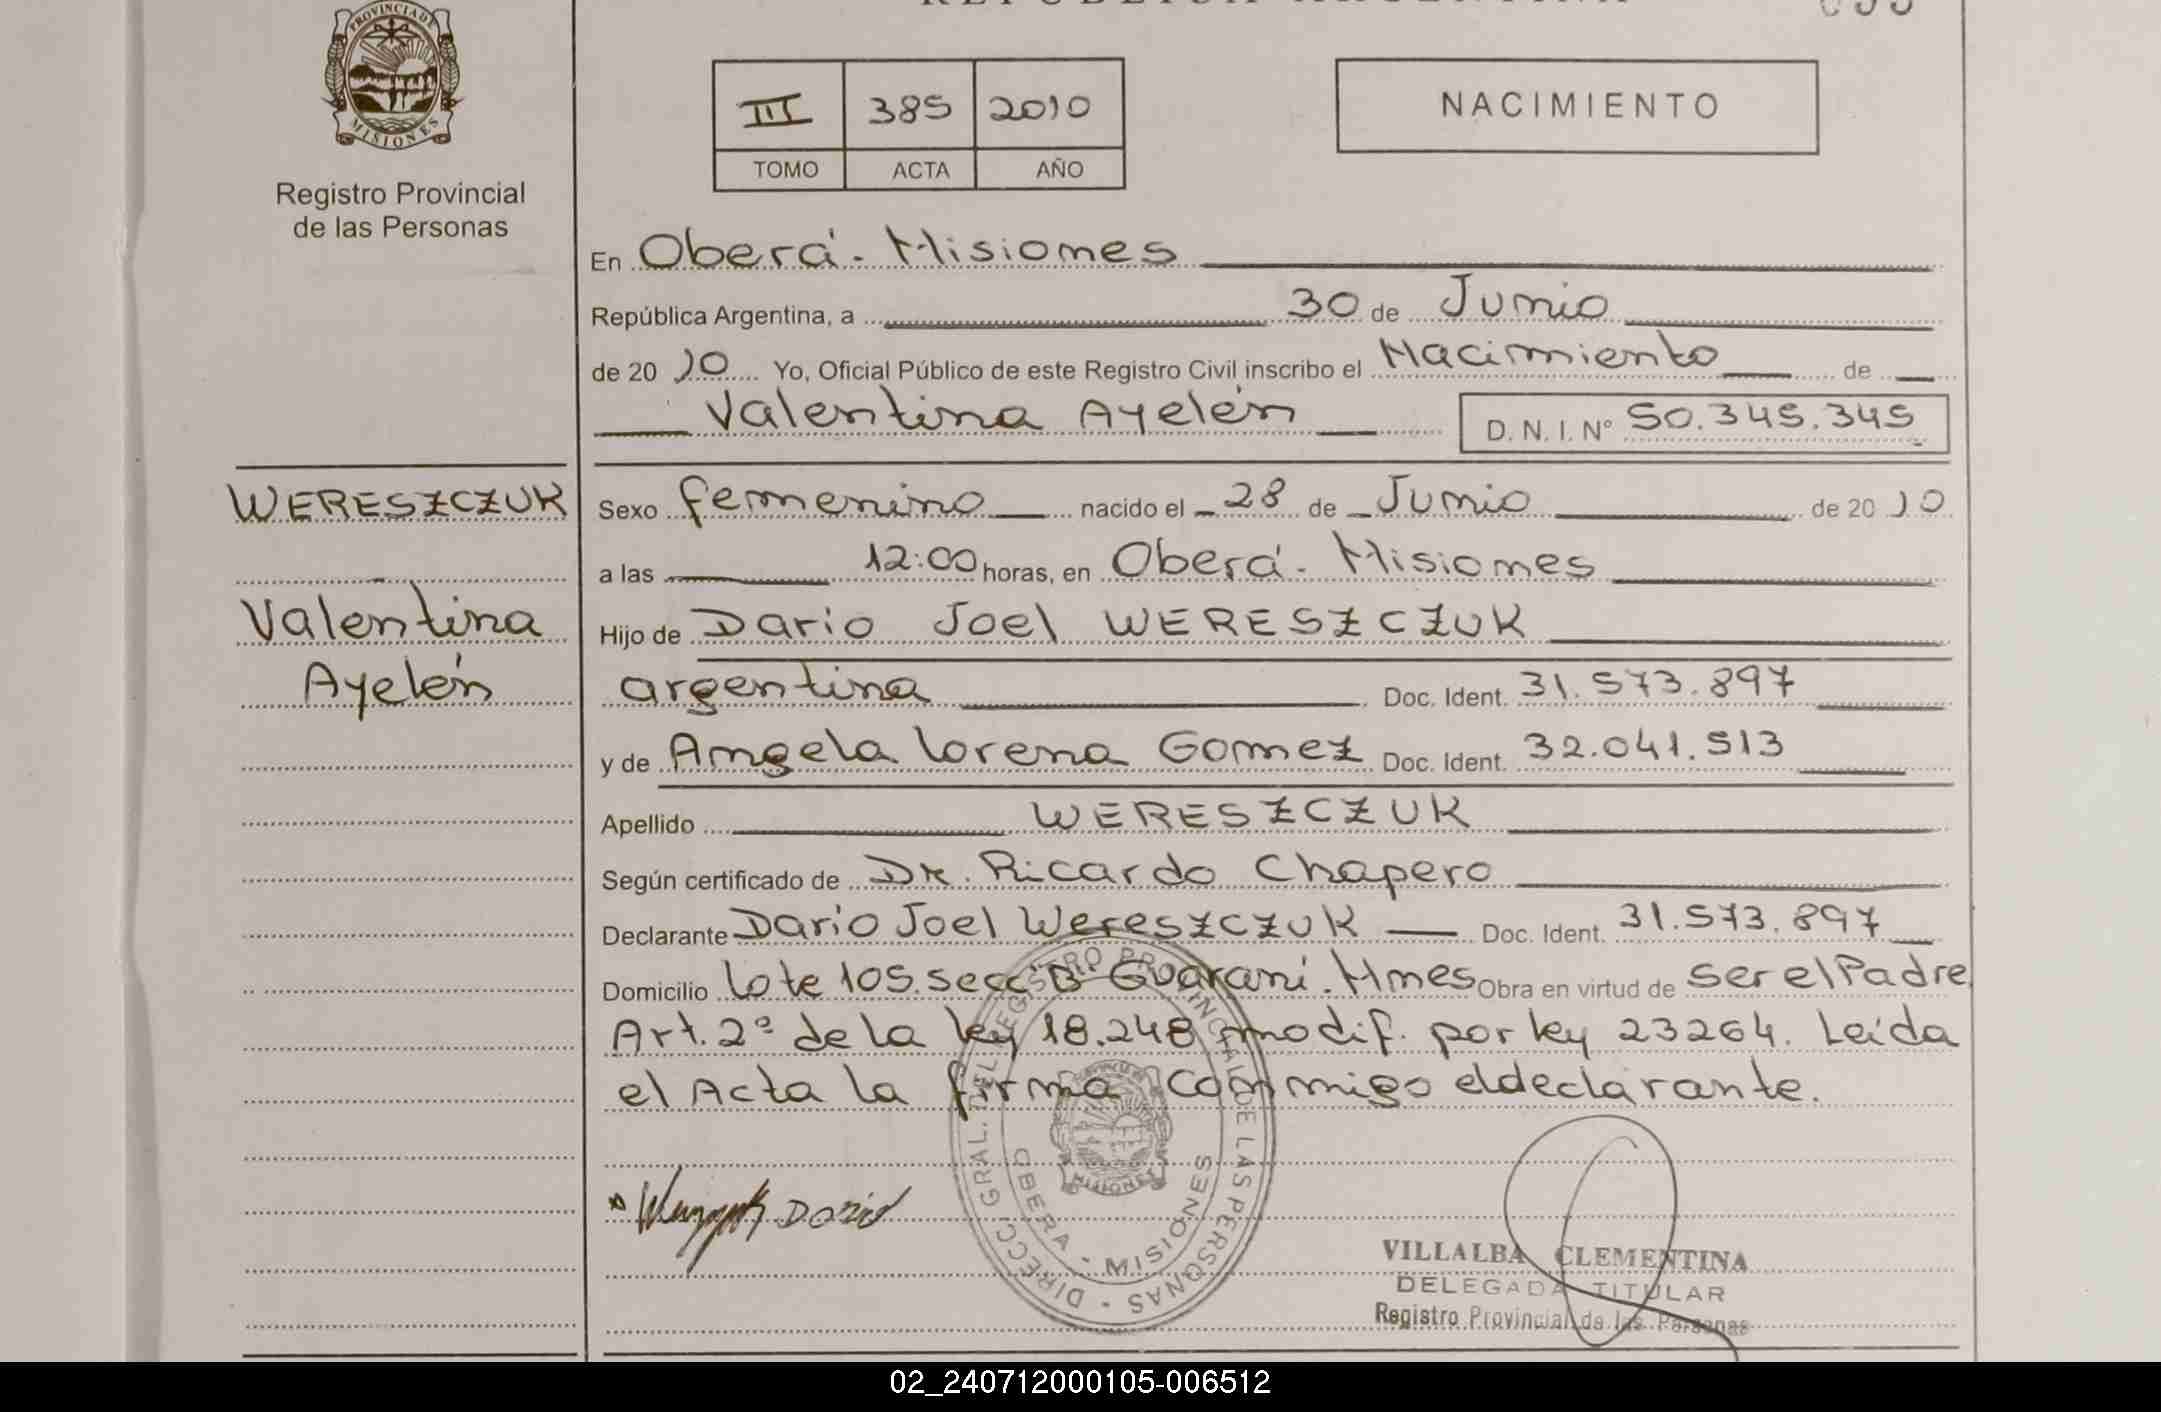 REPUBLICA ARGENTINA
PROVINCIA DE
MISIONES
Registro Provincial
de las Personas
III 385 2010
TOMO ACTA AÑO
NACIMIENTO
En Oberá - Misiones
República Argentina, a 30 de Junio
de 20 10 Yo, Oficial Público de este Registro Civil inscribo el Nacimiento de
Valentina Ayelén D. N. I. Nº 50.345.345
WERESZCZUK
Valentina
Ayelén
Sexo femenino nacido el 28 de Junio de 20 10
a las 12:00 horas, en Oberá - Misiones
Hijo de Dario Joel WERESZCZUK
argentina Doc. Ident. 31.573.897
y de Angela Lorena Gomez Doc. Ident. 32.041.513
Apellido WERESZCZUK
Según certificado de Dr. Ricardo Chapero
Declarante Dario Joel Wereszczuk Doc. Ident. 31.573.897
Domicilio Lote 105. Secc "B" Guaraní. Mnes Obra en virtud de ser el Padre
Art. 2º de la ley 18.248 modif. por ley 23264. Leída
el Acta la firma conmigo el declarante.
Dario
DIRECC. GRAL. DEL REGISTRO PROVINCIAL DE LAS PERSONAS
OBERA - MISIONES
MISIONES
VILLALBA CLEMENTINA
DELEGADA TITULAR
Registro Provincial de las Personas
02_240712000105-006512